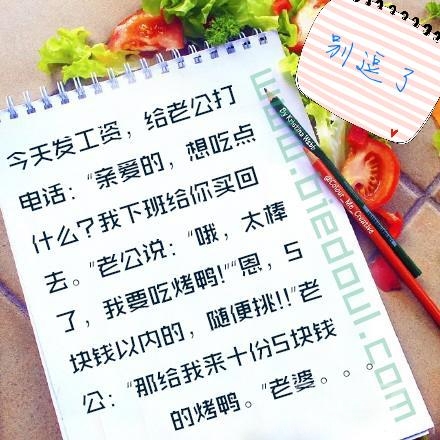 别逗了
今天发工资，给老公打
电话："亲爱的，想吃点
什么？我下班给你买回
去。"老公说："哦，太棒
了，我要吃烤鸭！""恩，5
块钱以内的，随便挑！！"老
公："那给我来十份5块钱
的烤鸭。"老婆。。。
By Kristina Webb
@Colour_Me_Creative